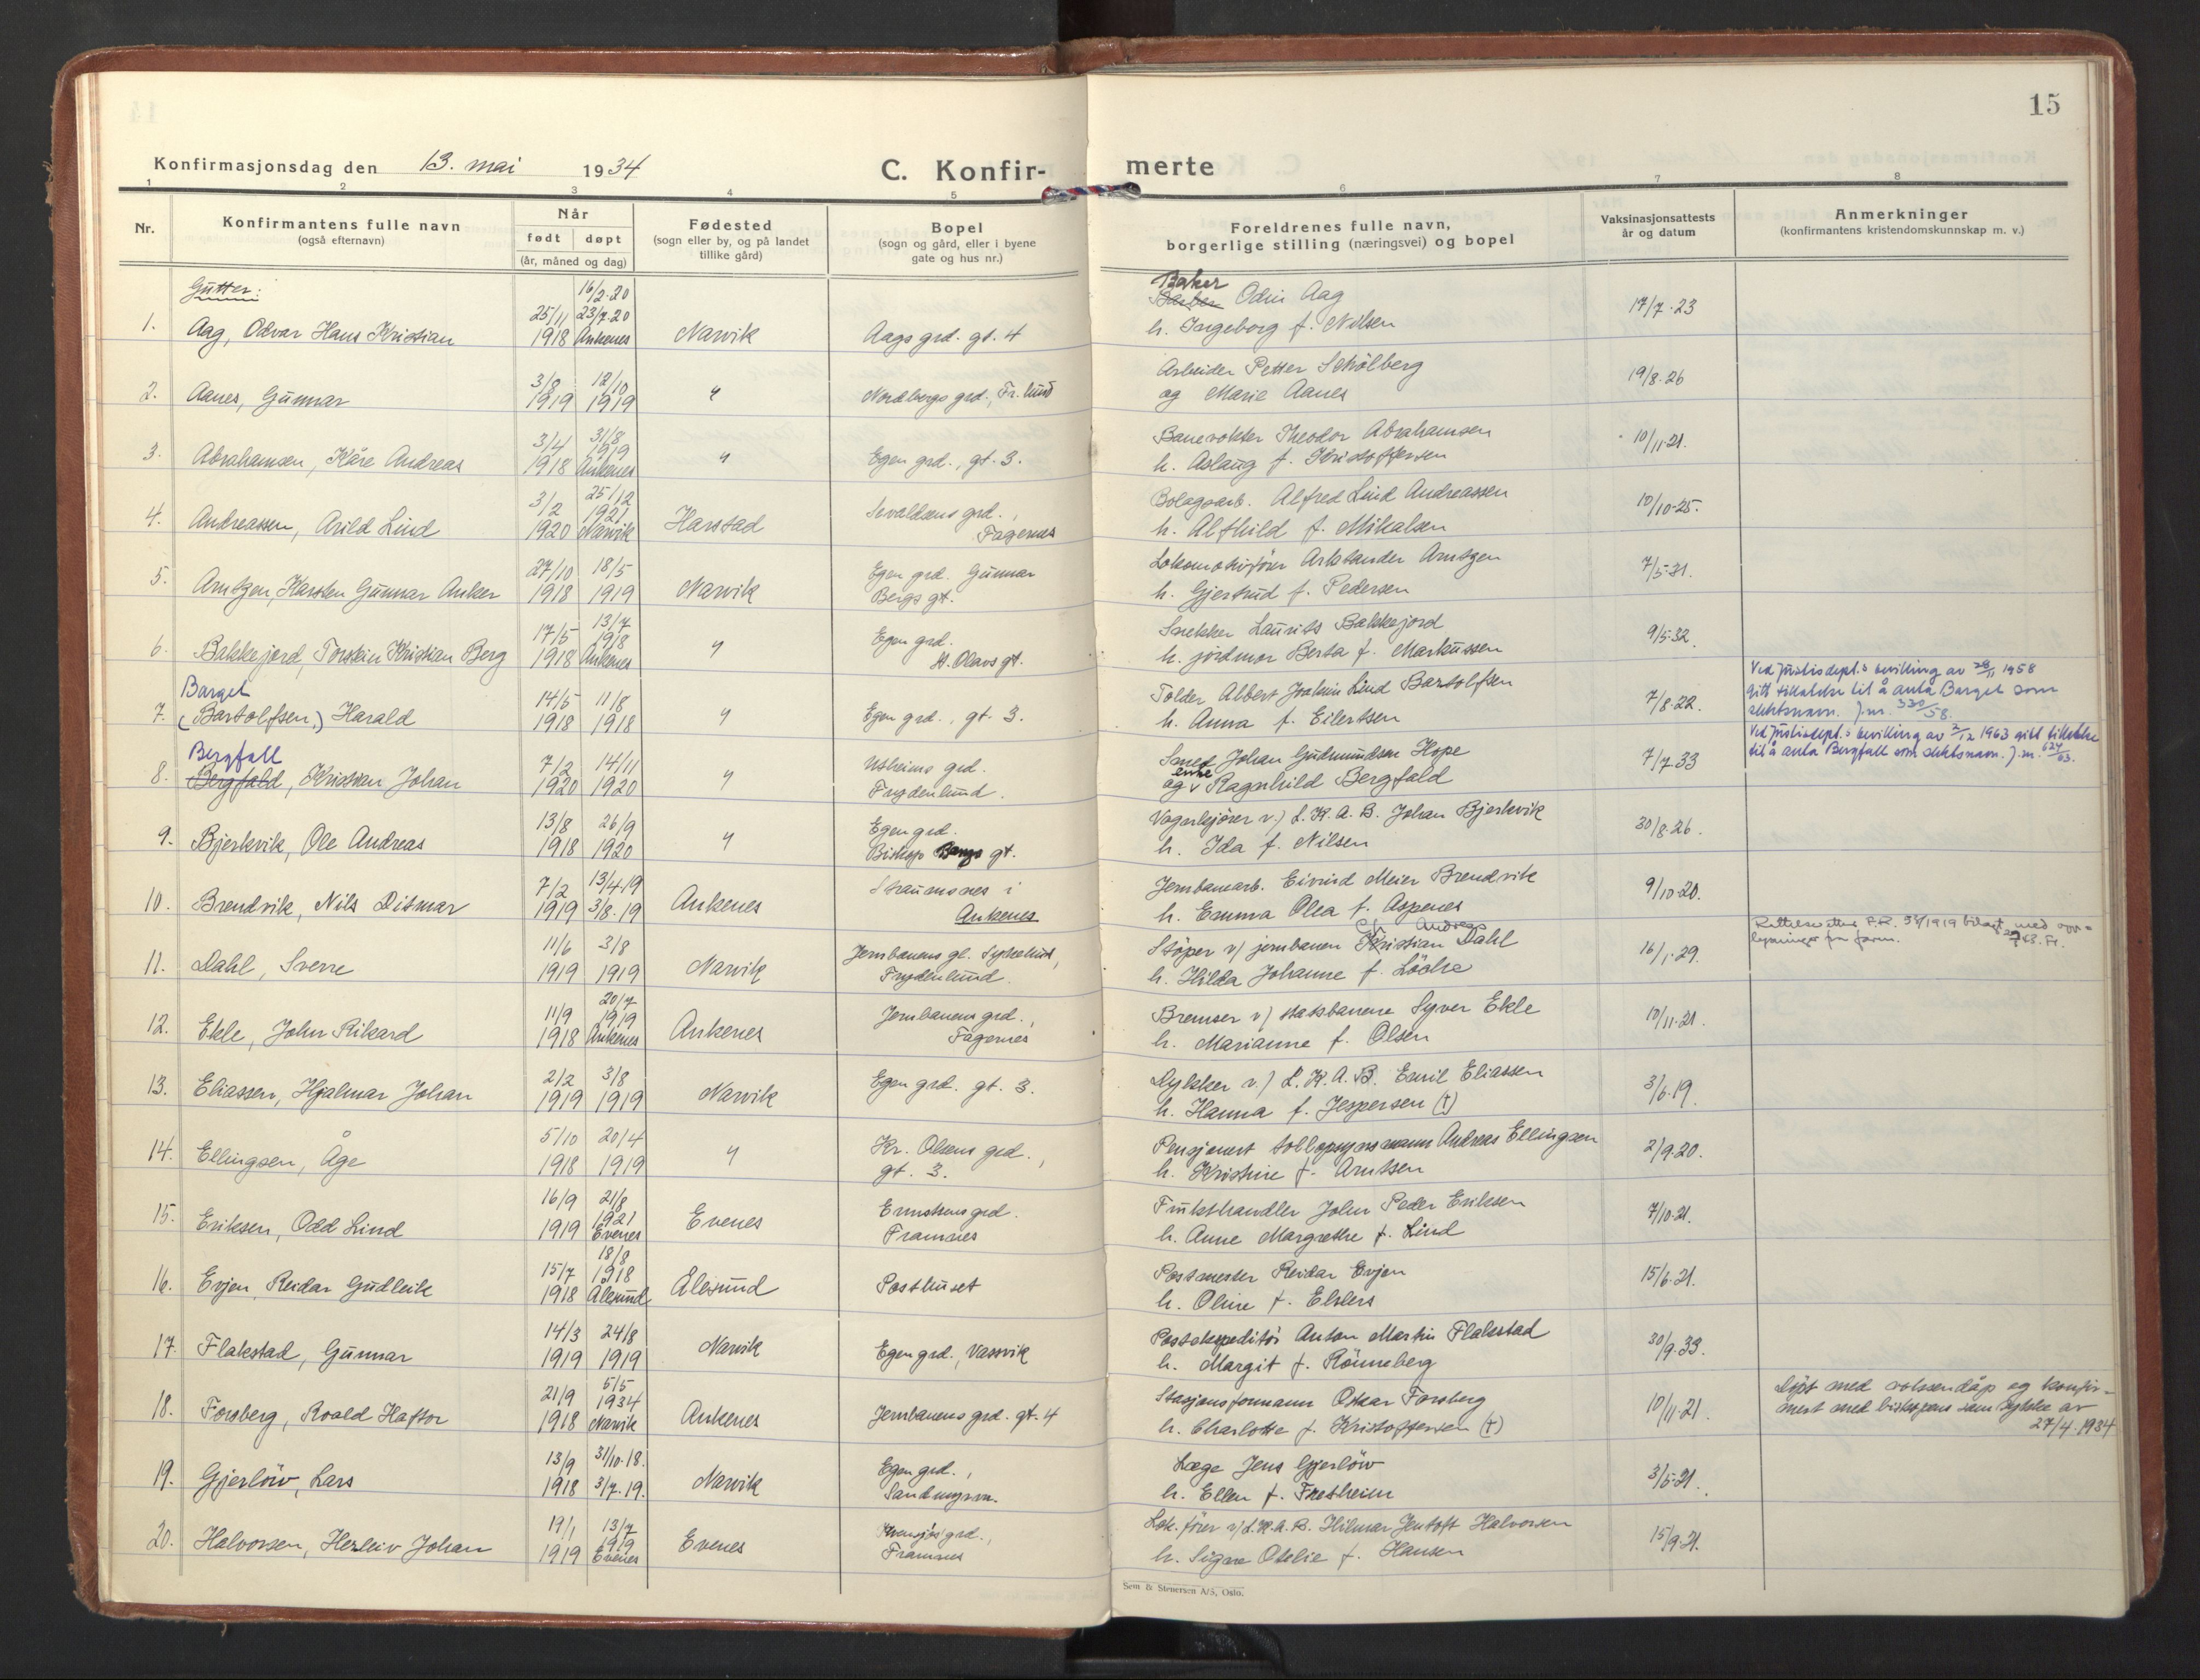 15
Konfirmasjonsdag den 13. mai 1934
C. Konfir-
merte
1 2 3 4 5 6 7 8
Nr.
Konfirmantens fulle navn
(også efternavn)
Når
født døpt
(år, måned og dag)
Fødested
(sogn eller by, og på landet
tillike gård)
Bopel
(sogn og gård, eller i byene
gate og hus nr.)
Foreldrenes fulle navn,
borgerlige stilling (næringsvei) og bopel
Vaksinasjonsattests
år og datum
Anmerkninger
(konfirmantens kristendomskunnskap m. v.)
Gutter:
16/2-20 Baker
25/11 23/7-20 Odin Aag 17/7-23
1. Aag, Odvar Hans Kristian 1918 Ankenes Narvik Aags grd. gt. 4 h. Ingeborg f. Nilsen
3/8 12/10 Arbeider Petter Schölberg 19/8-26
2. Aanes, Gunnar 1919 1919 " Nordbergs grd., Fr.lund og Marie Aanes
3/4 31/8 1919 Banevokter Theodor Abrahamsen 10/11-21.
3. Abrahamsen, Kåre Andreas 1918 Ankenes " Egen grd., gt. 3. h. Aslaug f. Kristoffersen
3/2 25/12 1921 Bolagsarb. Alfred Lind Andreassen 10/10-25.
4. Andreassen, Arild Lind 1920 Narvik Harstad Sevaldsens grd., Fagernes h. Alfhild f. Mikalsen
27/10 18/5 Egen grd. Gunnar Lokomotivfører Arntzen 7/5-31.
5. Arntzen, Karsten Gunnar Anker 1918 1919 Narvik Bergs gt. h. Gjertrud f. Pedersen
17/5 13/7 1918 Egen grd. Snekker Laurits Bakkejord 9/5-32.
6. Bakkejord, Torstein Kristian Berg 1918 Ankenes " St. Olavs gt. h. jordmor Berta f. Markussen
Bargel 14/5 11/8 Tolder Albert Joakim Lind Bartolfsen 7/8-22. Ved justisdept.s bevilling av 28/11 1958
7. (Bartolfsen,) Harald 1918 1918 " Egen grd., gt. 3. h. Anna f. Eilertsen gitt tillatelse til å anta Bargel som
slektsnavn. J.nr. 330/58.
Bergfall 7/2 14/11 Usheims grd. Smed Johan Gudmundsen Hope 7/7-33 Ved justisdept.s bevilling av 2/12 1963 gitt tillatelse
8. Bergfald, Kristian Johan 1920 1920 " Frydenlund. og enke Ragnhild Bergfald til å anta Bergfall som slektsnavn. J.nr. 624/63.
13/8 26/9 Egen grd. Vognkjører v/ L.K.A.B. Johan Bjerkvik 30/8-26.
9. Bjerkvik, Ole Andreas 1918 1920 " Biskop Bangs gt. h. Ida f. Nilsen
7/2 13/4-19 Straumsnes i Jernbanearb. Eivind Meier Brendvik 9/10-20.
10. Brendvik, Nils Ditmar 1919 3/8-19 Ankenes Ankenes h. Emma Olea f. Aspenes
11/6 3/8 Jernbanens gl. Sykehus, Støper v/ jernbanen Kristian Andreas Dahl 16/1-29.
11. Dahl, Sverre 1919 1919 Narvik Frydenlund. h. Hilda Johanne f.
11/9 20/7 1919 Jernbanens grd., Bremser v/ statsbanene Syver Ekle 10/11-21.
12. Ekle, John Rikard 1918 Ankenes Ankenes Fagernes h. Marianne f. Olsen
2/2 3/8 Dykker v/ L.K.A.B. Emil Eliassen 3/6-19.
13. Eliassen, Hjalmar Johan 1919 1919 Narvik Egen grd. gt. 3. h. Hanna f. Jespersen (†)
5/10 20/4 Kr. Olsens grd., Pensjonert tollopsynsmann Andreas Ellingsen 2/9-20.
14. Ellingsen, Åge 1918 1919 " gt. 3. h. Kristine f. Arntsen
16/9 21/8 1921 grd. Frukthandler John Peder Eriksen 7/10-21.
15. Eriksen, Odd Lind 1919 Evenes Evenes Framnes h. Anne Margrethe f. Lind
15/7 18/8 1918 Postmester Reidar Evjen 15/6-21.
16. Evjen, Reidar Gudleik 1918 Ålesund Ålesund Posthuset h. Oline f. Elslers
14/3 24/8 Postekspeditör Anton Martin Flakstad 30/9-33.
17. Flakstad, Gunnar 1919 1919 Narvik Egen grd., Vassvik h. Margit f. Rönneberg
21/9 5/5 1934 Stasjonsformann Oskar Forsberg 10/11-21. Döpt med voksendåp og konfir-
18. Forsberg, Roald Haftor 1918 Narvik Ankenes Jernbanens grd. gt. 4 h. Charlotte f. Kristoffersen (†) mert med biskopens samtykke av
27/4-1934
13/9 31/10-18. Egen grd., Læge Jens Gjerlöw 3/5-21.
19. Gjerlöw, Lars 1918 3/7-19. Narvik Sandmyrvn. h. Ellen f. Fretheim
19/1 13/7 1919 grd., Lok. fører v/ L.K.A.B. Hilmar Jentoft Halvorsen 15/9-21.
20. Halvorsen, Herleiv Johan 1919 Evenes Evenes Framnes h. Signe Otelie f. Hansen
Sem & Stenersen A/S, Oslo.